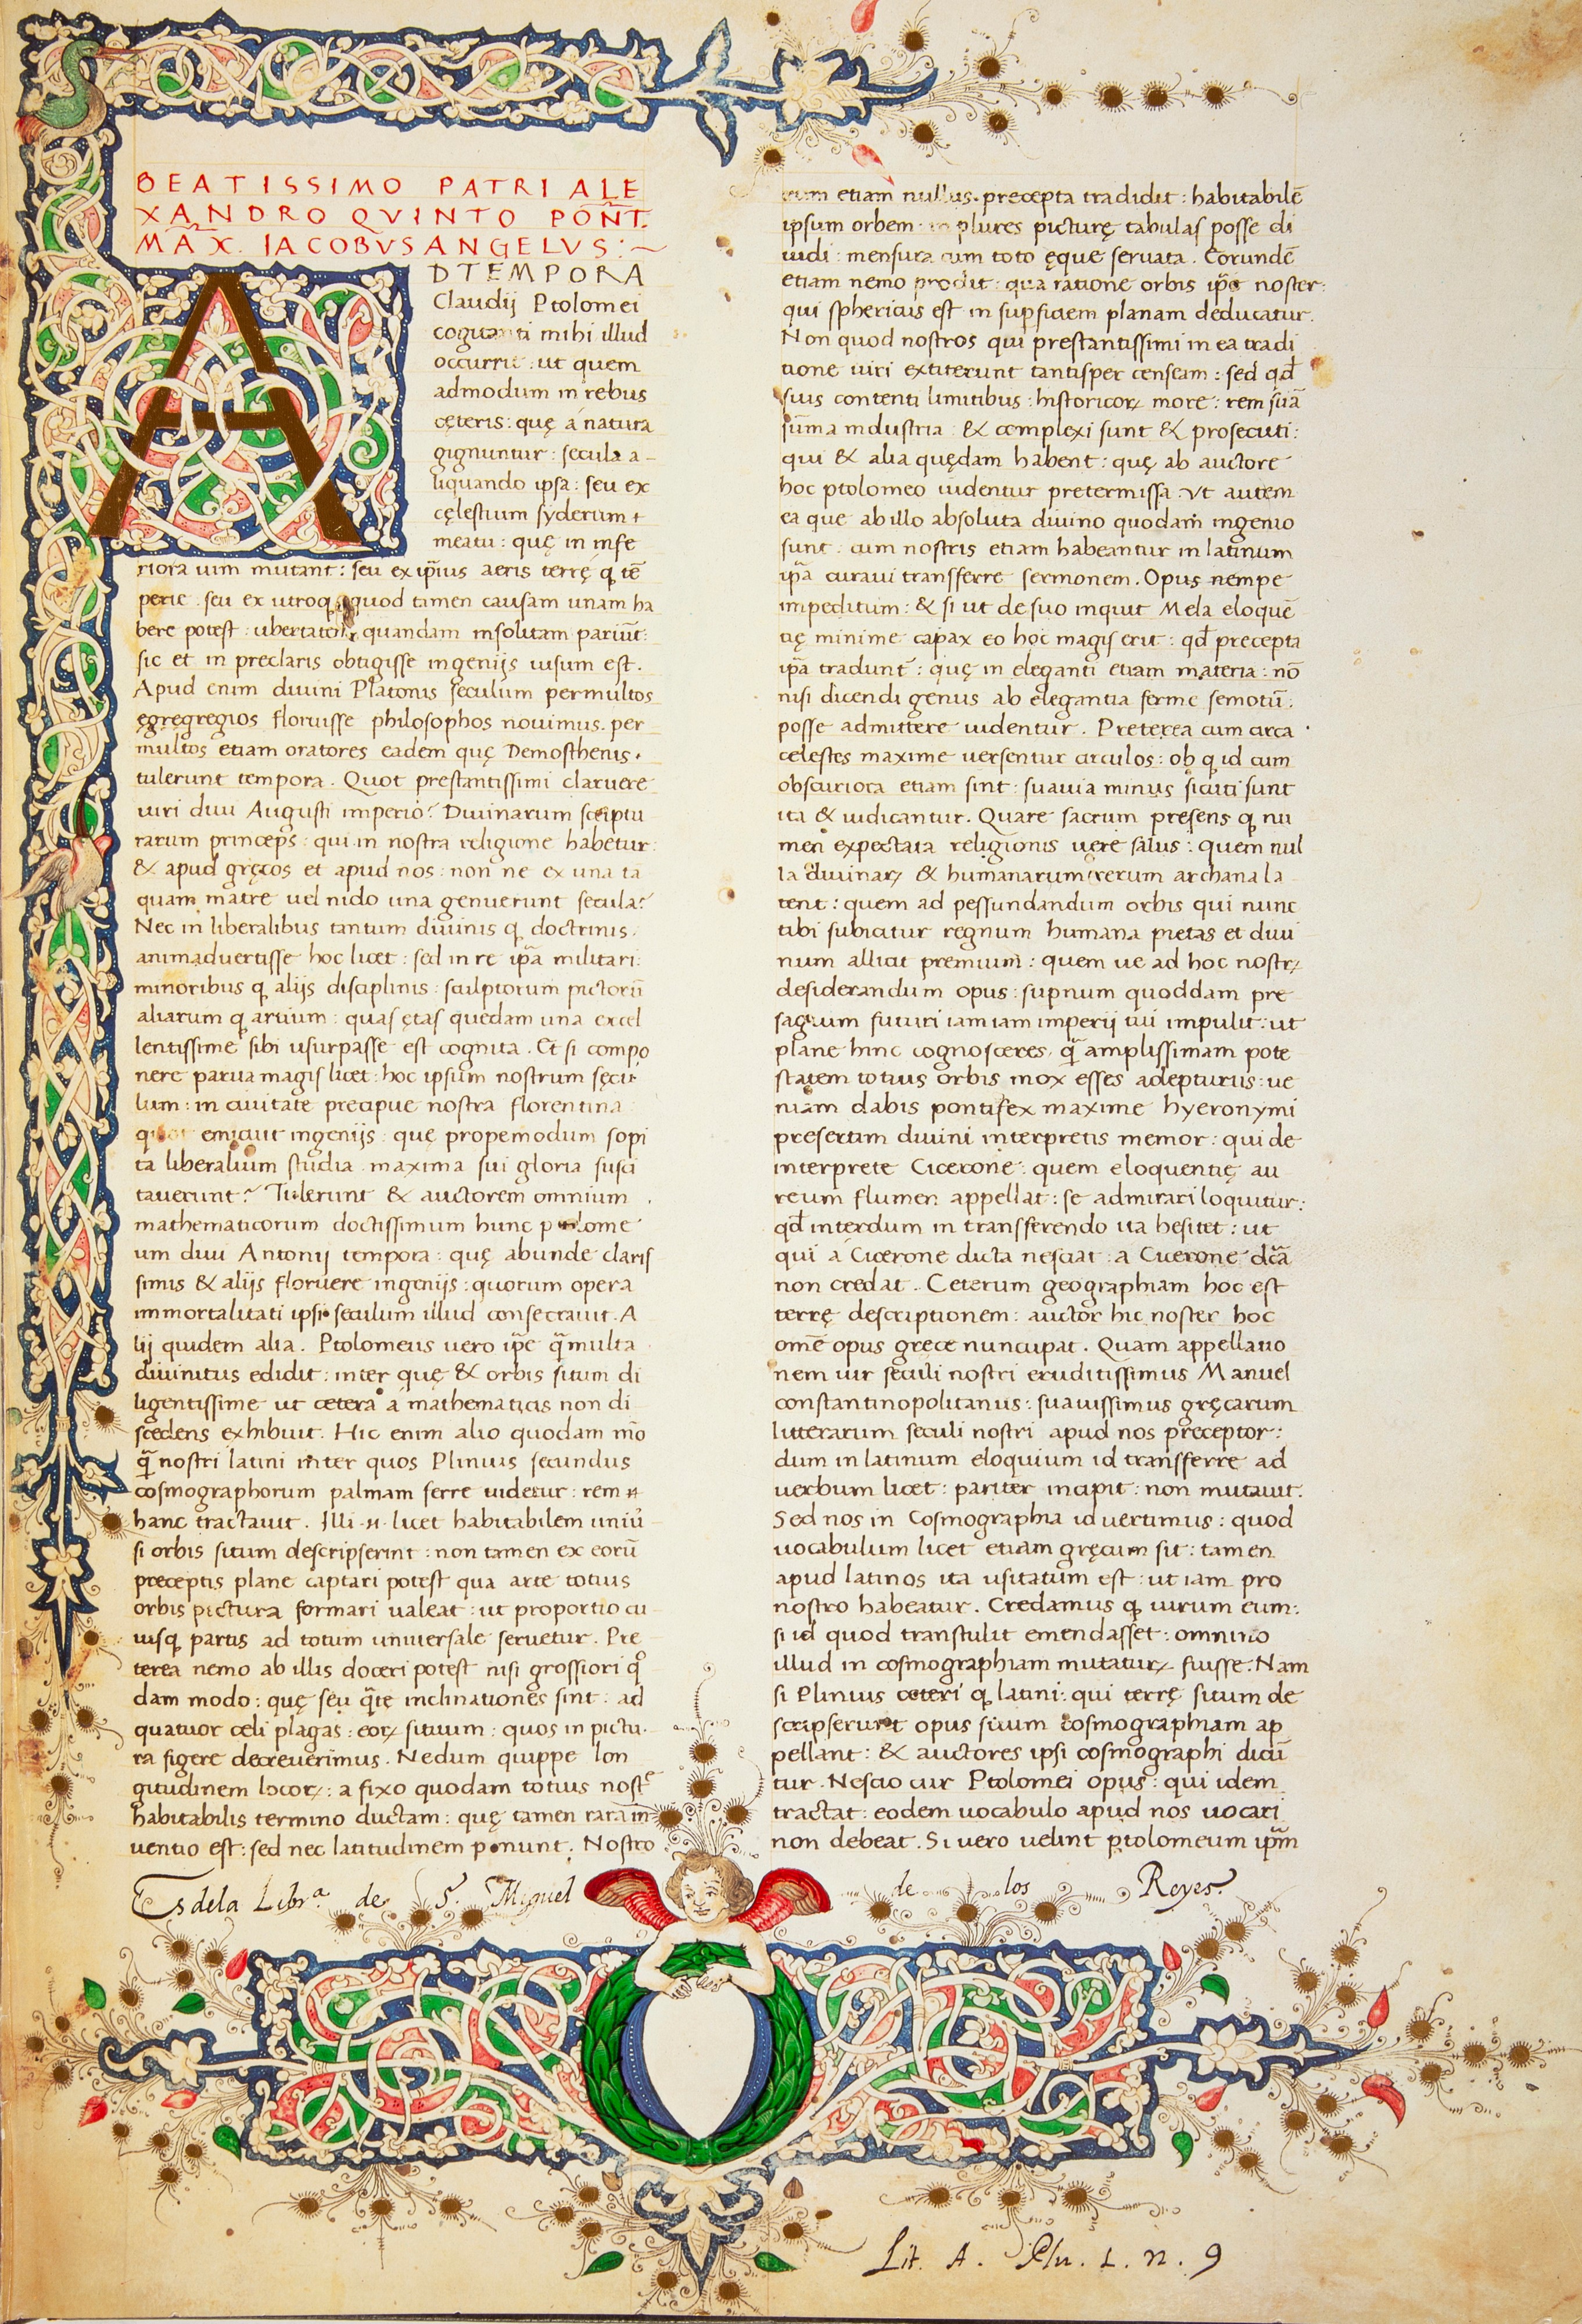 BEATISSIMO PATRI ALE
XANDRO QVINTO PON̄T.
MAX̄. IACOBVS ANGELVS :~
A
D TEMPORA
Claudij Ptolomei
mihi illud
occurrit : ut quem
admodum in rebus
cęteris : quę á natura
gignuntur : secula a-
liquando ipsa : seu ex
cęlestium syderum
meatu : quę in infe
riora uim mutant : seu ex ip̄ius aeris terrę q̨ tē
perie . seu ex utroq̨ quod tamen causam unam ha
bere potest : ubertatem quandam insolitam pariūt :
sic et in preclaris obtigisse ingenijs uisum est .
Apud enim diuini Platonis seculum permultos
ęgręgregios floruisse philosophos nouimus . per
multos etiam oratores eadem quę Demosthenis .
tulerunt tempora . Quot prestantissimi claruere
uiri diui Augusti imperio? Diuinarum scriptu
rarum princeps : qui in nostra religione habetur :
& apud gręcos et apud nos : non ne ex una ta
quam matre uel nido una genuerunt secula?
Nec in liberalibus tantum diuinis q̨ doctrinis .
animaduertisse hoc licet : sed in re ip̄a militari :
minoribus q̨ alijs disciplinis : sculptorum pictorū
aliarum q̨ artium : quas ętas quędam una excel
lentissime sibi usurpasse est cognita . Et si compo
nere parua magis licet : hoc ipsum nostrum sęcu
lum : in ciuitate precipue nostra florentina
emicuit ingenijs : quę propemodum sopi
ta liberalium studia maxima sui gloria susci
tauerunt? Tulerunt & auctorem omnium .
mathematicorum doctissimum hunc ptolome
um diui Antonij tempora : quę abunde claris
simis & alijs floruere ingenijs : quorum opera
immortalitati ipsi seculum illud consecrauit . A
lij quidem alia . Ptolomeus uero ip̄e q̄ multa
diuinitus edidit : inter quę & orbis situm di
ligentissime ut cetera á mathematicis non di
scedens exhibuit . Hic enim alio quodam mō
q̄ nostri latini inter quos Plinius secundus
cosmographorum palmam ferre uidetur : rem
hanc tractauit . Illi .n. licet habitabilem uniū
si orbis situm descripserint : non tamen ex eorū
preceptis plane captari potest qua arte totius
orbis pictura formari ualeat : ut proportio cu
iusq̨ partis ad totum uniuersale seruetur . Pre
terea nemo ab illis doceri potest nisi grossiori qͦ
dam modo : quę seu q̄te inclinationes sint : ad
quatuor celi plagas : eorꝝ situum : quos in pictu .
ra figere decreuerimus . Nedum quippe lon
gitudinem locorꝝ : a fixo quodam totius nostᵉ
habitabilis termino ductam : quę tamen rara in
uentio est : sed nec latitudinem ponunt . Nostro
eum etiam nullus . precepta tradidit : habitabilē
ipsum orbem in plures picturę tabulas posse di
uidi : mensura cum toto ęque seruata . Eorundē
etiam nemo prodit : qua ratione orbis ip̄e noster :
qui sphericus est in sup̱ficiem planam deducatur .
Non quod nostros qui prestantissimi in ea tradi
tione uiri extiterunt tantisper censeam : sed qd̄
suis contenti limitibus : historicorꝝ more : rem suā
sūma industria : & complexi sunt & prosecuti :
qui & alia quędam habent : quę ab auctore
hoc ptolomeo uidentur pretermissa . Vt autem
ea que ab illo absoluta diuino quodam̄ ingenio
sunt : cum nostris etiam habeantur in latinum
ip̄a curaui transferre sermonem . Opus nempe
impeditum : & si ut de suo inquit Mela eloquē
tię minime capax eo hoc magis erit : qd̄ precepta
ip̄a tradunt̄ : quę in eleganti etiam materia : nō
nisi dicendi genus ab elegantia ferme semotū :
posse admittere uidentur . Preterea cum circa .
celestes maxime uersentur circulos : ob q̨ id cum
obscuriora etiam sint : suauia minus sicuti sunt
ita & iudicantur . Quare sacrum presens q̨ nu
men expectata religionis uere salus : quem nul
la diuinarꝝ & humanarum rerum archana la
tent : quem ad pessundandum orbis qui nunc
tibi subicitur regnum humana pietas et diui
num allicit premium : quem ue ad hoc nostrꝝ
desiderandum opus : sup̱num quoddam pre
sagium futuri iam iam imperij tui impulit : ut
plane hinc cognosceres . q̄ amplissimam pote
statem totius orbis mox esses adepturus : ue
niam dabis pontifex maxime hyeronymi
presertim diuini interpretis memor : qui de
interprete Cicerone : quem eloquentię au
reum flumen appellat : se admirari loquitur :
qd̄ interdum in transferendo ita hesitet : ut
qui á Cicerone dicta nesciat : a Cicerone dc̄ā
non credat . Ceterum geographiam hoc est
terrę descriptionem : auctor hic noster hoc
omē opus gręce nuncupat . Quam appellatio
nem uir seculi nostri eruditissimus Manuel
constantinopolitanus : suauissimus gręcarum
litterarum seculi nostri apud nos preceptor :
dum in latinum eloquium id transferre ad
uerbum licet : pariter incipit : non mutauit .
Sed nos in Cosmographia id uertimus : quod
uocabulum licet etiam gręcum sit : tamen
apud latinos ita usitatum est : ut iam pro
nostro habeatur . Credamus q̨ uirum eum :
si id quod transtulit emendasset : omnino
illud in cosmographiam mutaturꝝ fuisse . Nam
si Plinius ceteri q̨ latini : qui terrę situm de
scripserunt opus suum cosmographiam ap
pellant : & auctores ipsi cosmographi dicū
tur . Nescio cur Ptolomei opus : qui idem
tractat : eodem uocabulo apud nos uocari
non debeat . Si uero uelint ptolomeum ip̄m
Es dela Libr.ª de S. Miguel de los Reyes.
Lit. A. Plu. L. n. 9